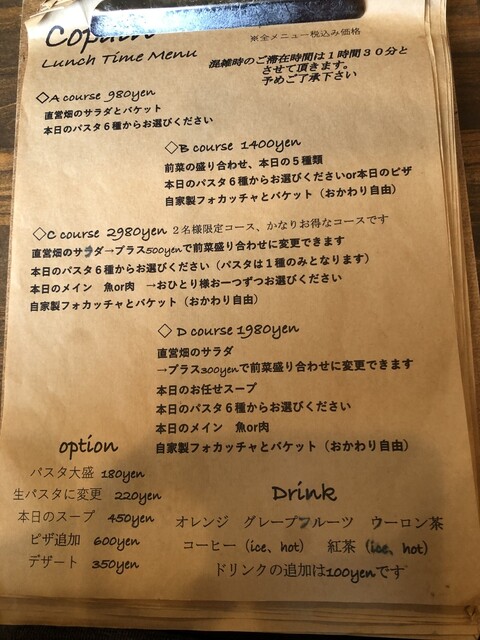 Lunch Time Menu
※全メニュー税込み価格
混雑時のご滞在時間は１時間３０分と
させて頂きます。
予めご了承下さい
◇A course 980yen
直営畑のサラダとバケット
本日のパスタ６種からお選びください
◇B course 1400yen
前菜の盛り合わせ、本日の５種類
本日のパスタ６種からお選びくださいor本日のピザ
自家製フォカッチャとバケット（おかわり自由）
◇C course 2980yen ２名様限定コース、かなりお得なコースです
直営畑のサラダ→プラス500yenで前菜盛り合わせに変更できます
本日のパスタ６種からお選びください（パスタは１種のみとなります）
本日のメイン 魚or肉 →おひとり様お一つずつお選びください
自家製フォカッチャとバケット（おかわり自由）
◇ D course 1980yen
直営畑のサラダ
→プラス300yenで前菜盛り合わせに変更できます
本日のお任せスープ
本日のパスタ６種からお選びください
本日のメイン 魚or肉
自家製フォカッチャとバケット（おかわり自由）
option
パスタ大盛 180yen
生パスタに変更 220yen
本日のスープ 450yen
ピザ追加 600yen
デザート 350yen
Drink
オレンジ グレープフルーツ ウーロン茶
コーヒー（ice、hot） 紅茶（ice、hot）
ドリンクの追加は100yenです